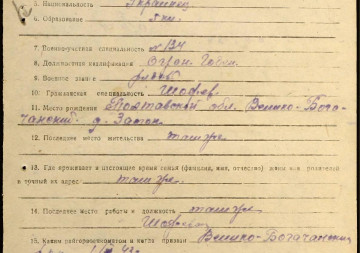 5. Национальность Украинец
6. Образование 7 кл.
7. Военноучетная специальность № 134
8. Должностная квалификация
9. Военное звание рядов.
10. Гражданская специальность Шофер.
11. Место рождения Полтавской обл. Велико-Бога-
чанский д. Затон.
12. Последнее место жительства там же
13. Где проживает в настоящее время семья (фамилия, имя, отчество) жены или родителей
и точный их адрес там же.
14. Последнее место работы и должность там же
Шофером
15. Каким райгорвоенкоматом и когда призван Велико-Богачанским